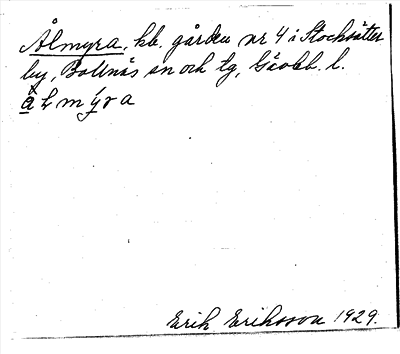 Ålmyra, hb. gården nr 4 i Stocksätter
by, Bollnäs sn och tg, Gävleb. l.
å̀ L m ý r a
Erik Eriksson 1929.